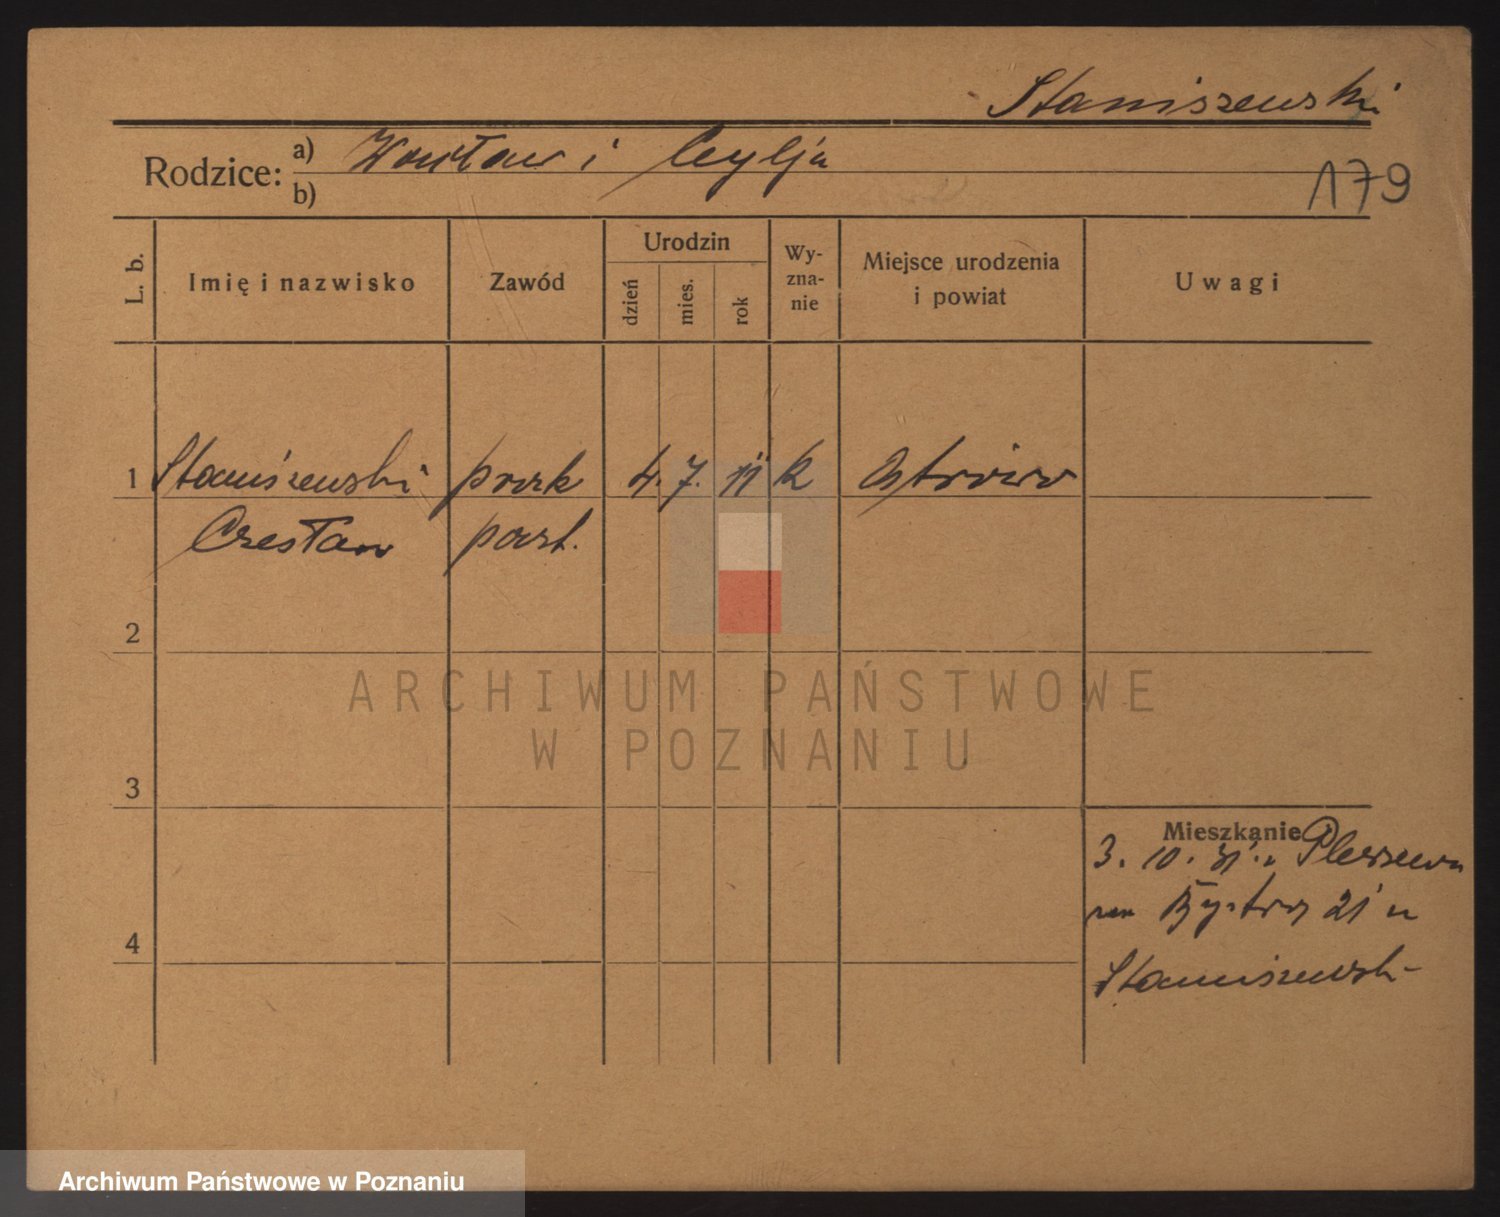 Staniszewski
Rodzice: a) Wacław i Cylja
b)
179
L. b. Imię i nazwisko Zawód Urodzin dzień mies. rok Wy-zna-nie Miejsce urodzenia i powiat Uwagi
1 Staniszewski prak 4. 7. 11 k Ostrów
Czesław part.
2
3
4
Mieszkanie
3. 10. 31. z Pleszewa
Bystrzy 21 u
Staniszewski
ARCHIWUM PAŃSTWOWE
W POZNANIU
Archiwum Państwowe w Poznaniu